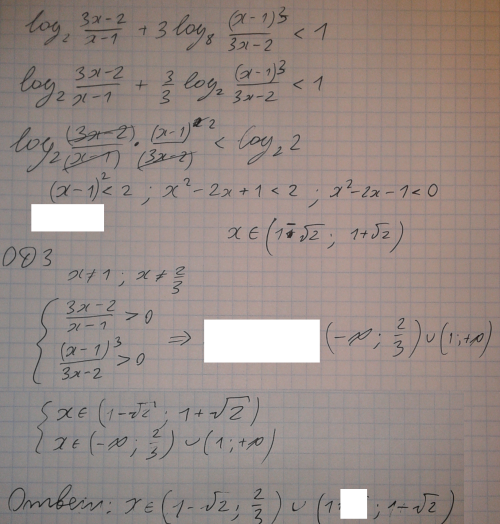 log₂ (3x-2)/(x-1) + 3 log₈ (x-1)³/(3x-2) < 1
log₂ (3x-2)/(x-1) + 3/3 log₂ (x-1)³/(3x-2) < 1
log₂ (3x-2)/(x-1) · (x-1)²/(3x-2) < log₂ 2
(x-1)² < 2 ; x²-2x+1 < 2 ; x²-2x-1 < 0
x ∈ (1-√2 ; 1+√2)
ОДЗ
x≠1 ; x≠2/3
{ (3x-2)/(x-1) > 0
(x-1)³/(3x-2) > 0 ⇒ (-∞ ; 2/3) ∪ (1 ; +∞)
{ x ∈ (1-√2 ; 1+√2)
x ∈ (-∞ ; 2/3) ∪ (1 ; +∞)
Ответ: x ∈ (1-√2 ; 2/3) ∪ (1 ; 1+√2)